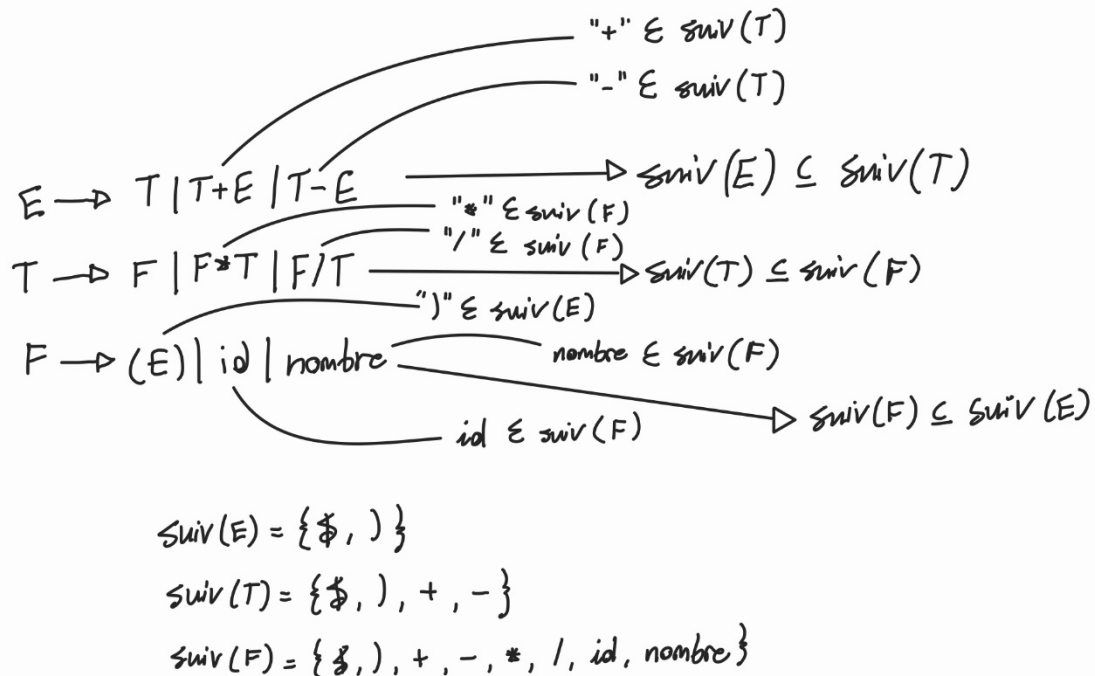 "+" ∈ suiv(T)
"-" ∈ suiv(T)
E → T | T+E | T-E → suiv(E) ⊆ suiv(T)
"*" ∈ suiv(F)
"/" ∈ suiv(F)
T → F | F*T | F/T → suiv(T) ⊆ suiv(F)
")" ∈ suiv(E)
F → (E) | id | nombre nombre ∈ suiv(F)
suiv(F) ⊆ suiv(E)
id ∈ suiv(F)
suiv(E) = {$, )}
suiv(T) = {$, ), +, -}
suiv(F) = {$, ), +, -, *, /, id, nombre}